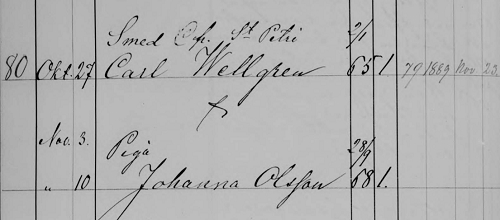 Smed Cp. St Petri 2/1
80 Okt. 27 Carl Wellgren 65 1. 79 1889 Nov. 23.
Nov. 3. Piga 28/9
" 10 Johanna Olsson 68 1.